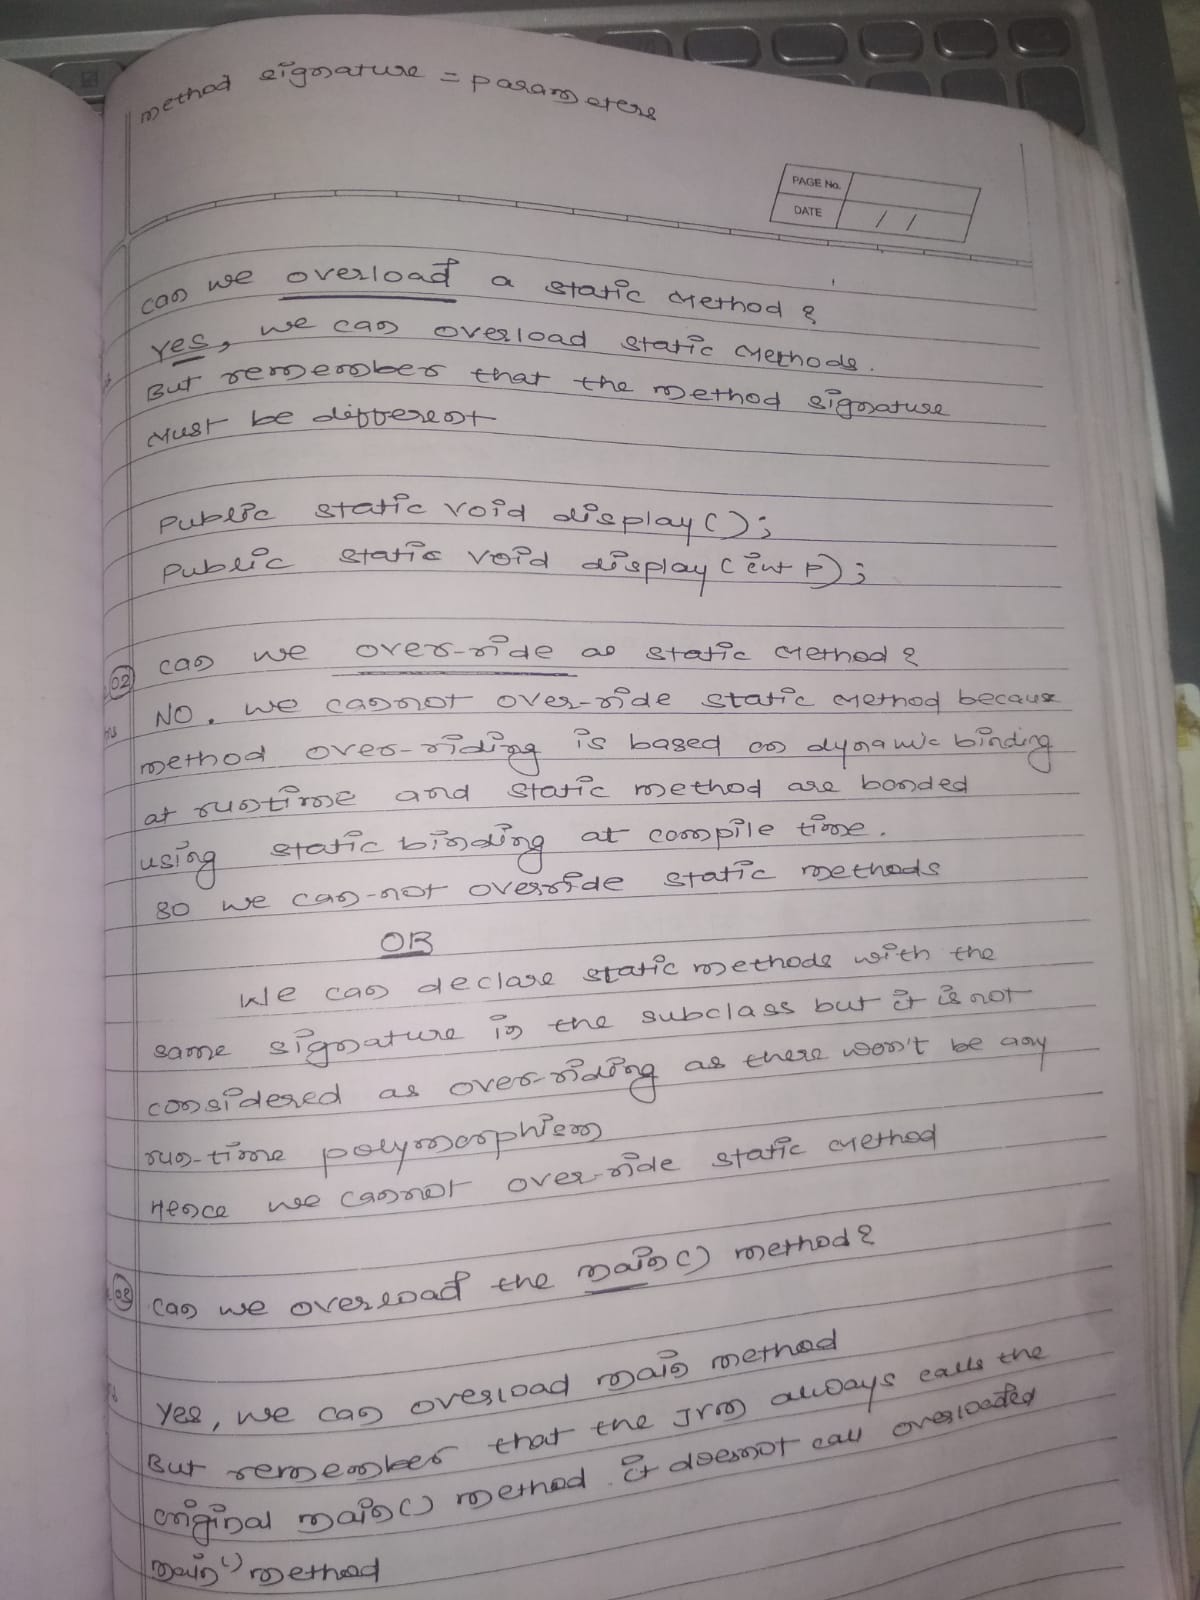 method signature = parameters
PAGE No.
DATE / /
can we overload a static method ?
Yes, we can overload static methods.
But remember that the method signature
must be different
Public static void display();
Public static void display(int P);
02 can we over-ride as static method ?
NO. we cannot over-ride static method because
method over-riding is based on dynamic binding
at runtime and static method are bonded
using static binding at compile time.
so we can-not override static methods
OR
We can declare static methods with the
same signature in the subclass but it is not
considered as over-riding as there won't be any
run-time polymorphism
Hence we cannot over-ride static method
03 can we overload the main() method ?
Yes, we can overload main method
But remember that the JVM always calls the
original main() method. it doesnot call overloaded
main() method